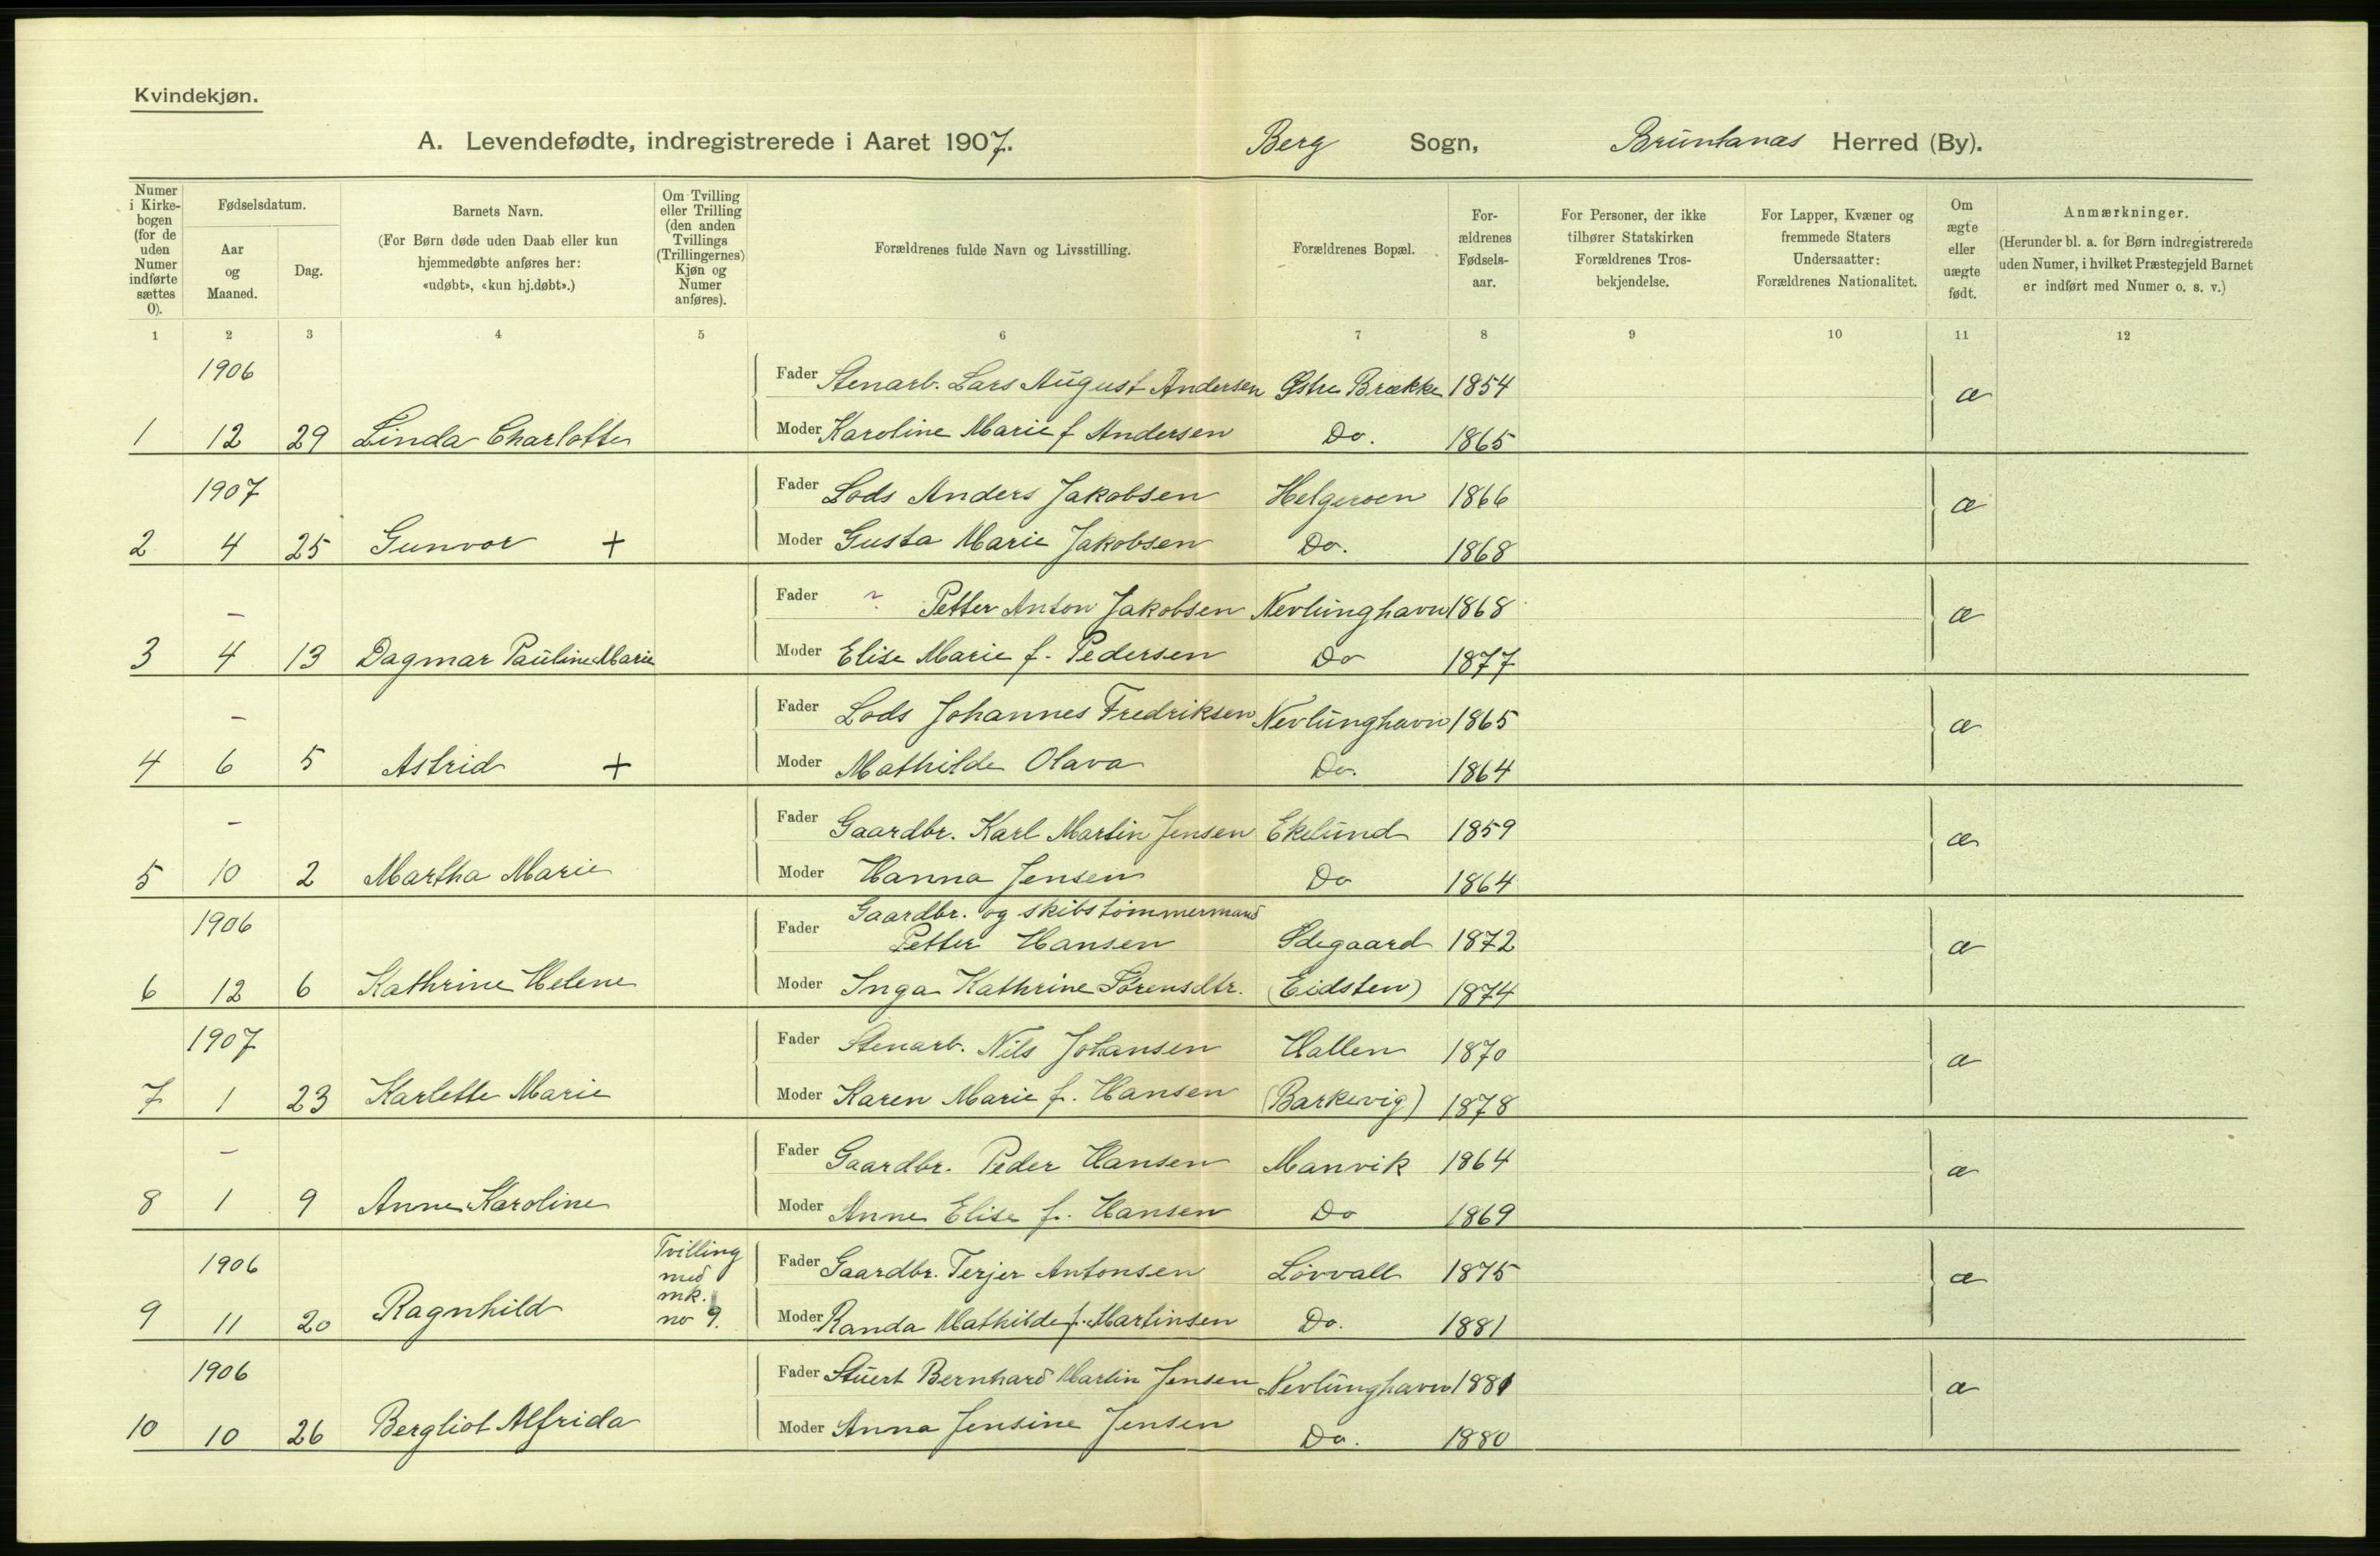 Kvindekjøn.
A. Levendefødte, indregistrerede i Aaret 1907. Berg Sogn, Brunlanæs Herred (By).
Numer i Kirkebogen (for de uden Numer indførte sættes 0).
Fødselsdatum.
Aar og Maaned.
Dag.
Barnets Navn.
(For Børn døde uden Daab eller kun hjemmedøbte anføres her: «udøbt», «kun hj.døbt».)
Om Tvilling eller Trilling (den anden Tvillings (Trillingernes) Kjøn og Numer anføres).
Forældrenes fulde Navn og Livsstilling.
Forældrenes Bopæl.
Forældrenes Fødselsaar.
For Personer, der ikke tilhører Statskirken Forældrenes Trosbekjendelse.
For Lapper, Kvæner og fremmede Staters Undersaatter: Forældrenes Nationalitet.
Om ægte eller uægte født.
Anmærkninger.
(Herunder bl. a. for Børn indregistrerede uden Numer, i hvilket Præstegjeld Barnet er indført med Numer o. s. v.)
1 2 3 4 5 6 7 8 9 10 11 12
1906 Fader Stenarb. Lars August Andersen Østre Brække 1854 æ
1 12 29 Linda Charlotte Moder Karoline Marie f Andersen Do. 1865
1907 Fader Lods Anders Jakobsen Helgeroen 1866 æ
2 4 25 Gunvor + Moder Gusta Marie Jakobsen Do. 1868
– Fader ? Petter Anton Jakobsen Nevlunghavn 1868 æ
3 4 13 Dagmar Pauline Marie Moder Elise Marie f. Pedersen Do 1877
– Fader Lods Johannes Fredriksen Nevlunghavn 1865 æ
4 6 5 Astrid + Moder Mathilde Olava Do. 1864
– Fader Gaardbr. Karl Martin Jensen Ekelund 1859 æ
5 10 2 Martha Marie Moder Hanna Jensen Do 1864
1906 Fader Gaardbr. og skibstømmermand
Petter Hansen Ødegaard 1872 æ
6 12 6 Kathrine Helene Moder Inga Kathrine Sørensdtr. (Eidsten) 1874
1907 Fader Stenarb. Nils Johansen Hallen 1870 æ
7 1 23 Karlette Marie Moder Karen Marie f. Hansen (Barkevig) 1878
– Fader Gaardbr. Peder Hansen Manvik 1864 æ
8 1 9 Anne Karoline Moder Anne Elise f. Hansen Do 1869
1906 Tvilling med mk. no 9. Fader Gaardbr. Terjer Antonsen Løvvall 1875 æ
9 11 20 Ragnhild Moder Randa Mathilde f. Martinsen Do. 1881
1906 Fader Stuert Bernhard Martin Jensen Nevlunghavn 1881 æ
10 10 26 Bergliot Alfrida Moder Anna Jensine Jensen Do. 1880